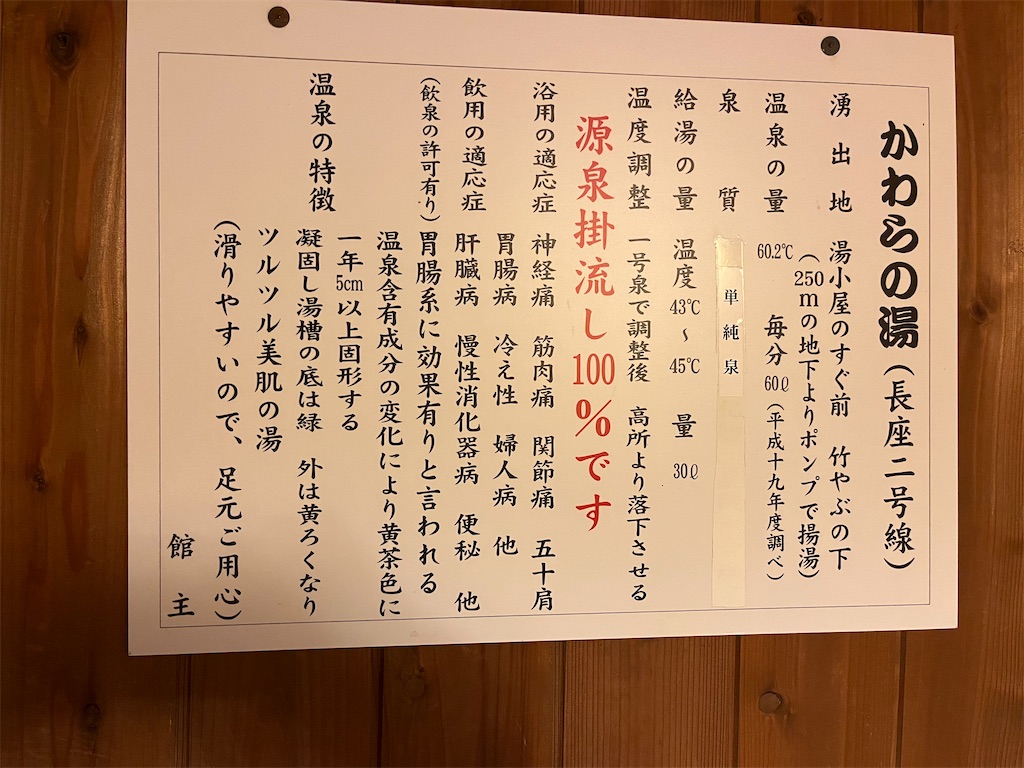 かわらの湯（長座二号線）
湧出地　湯小屋のすぐ前　竹やぶの下
（250mの地下よりポンプで揚湯）
温泉の量　60.2℃　毎分60ℓ（平成十九年度調べ）
泉質　単純泉
給湯の量　温度43℃〜45℃　量　30ℓ
温度調整　一号泉で調整後　高所より落下させる
源泉掛流し100％です
浴用の適応症　神経痛　筋肉痛　関節痛　五十肩
胃腸病　冷え性　婦人病　他
飲用の適応症　肝臓病　慢性消化器病　便秘　他
（飲泉の許可有り）胃腸系に効果有りと言われる
温泉含有成分の変化により黄茶色に
一年5cm以上固形する
温泉の特徴　凝固し湯槽の底は緑　外は黄ろくなり
ツルツル美肌の湯
（滑りやすいので、足元ご用心）
館主